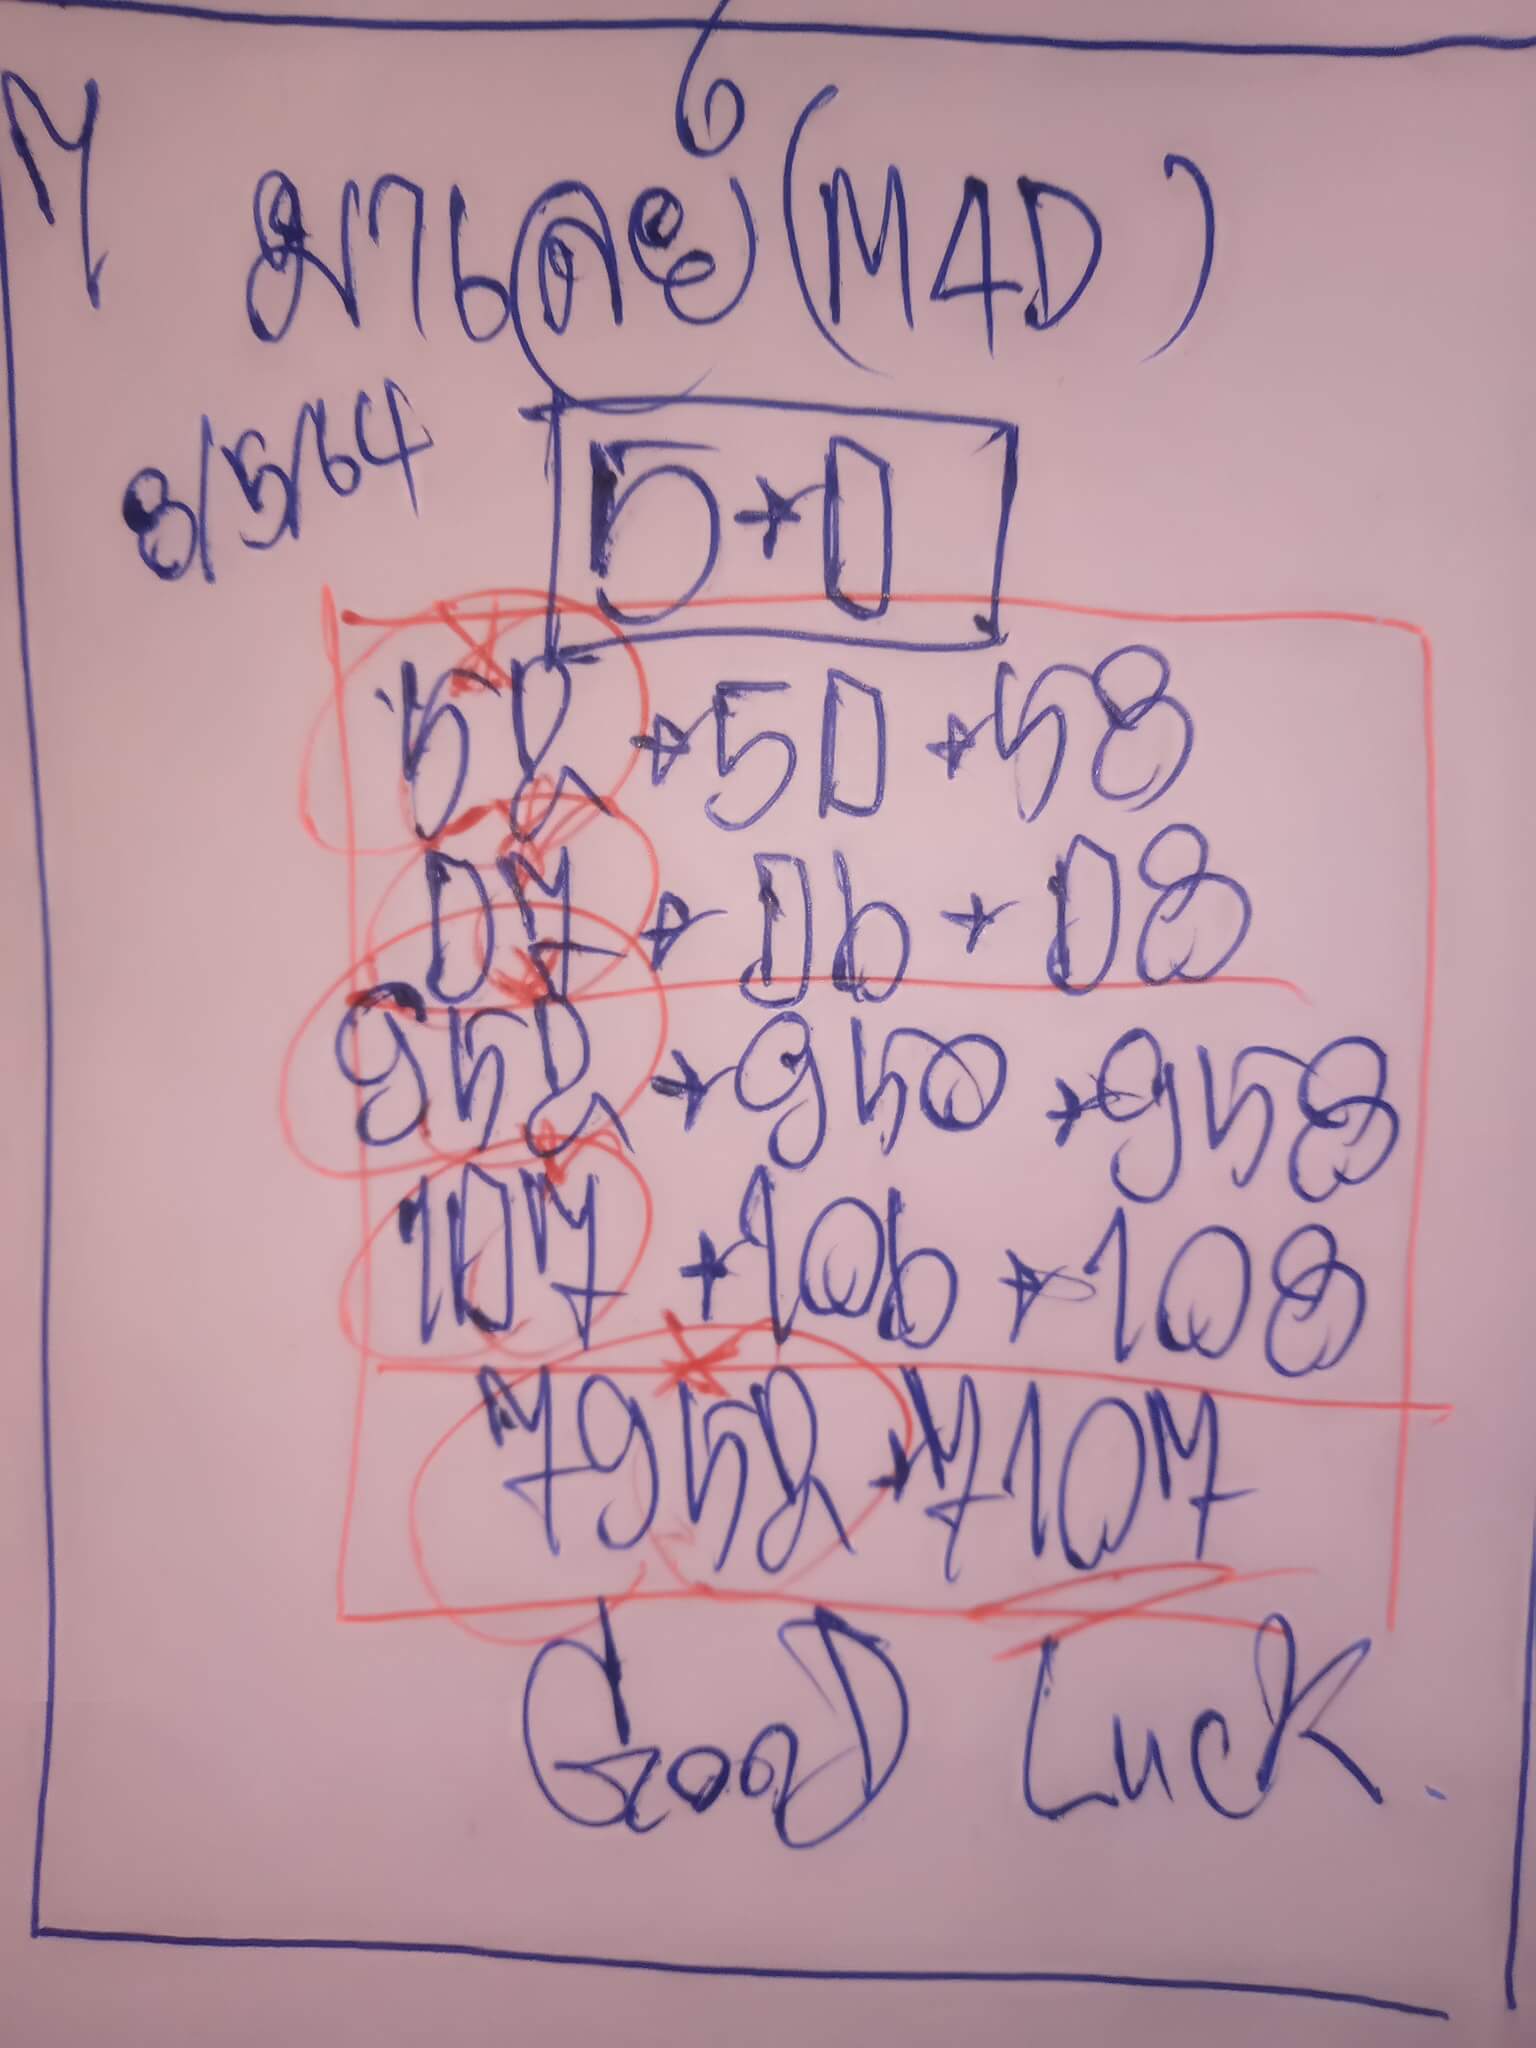 มาเลย์ (M4D)
8/5/64
5+0
52 + 50 + 58
07 + 06 + 08
952 + 950 + 958
107 + 106 + 108
7952 + 7107
GooD Luck.